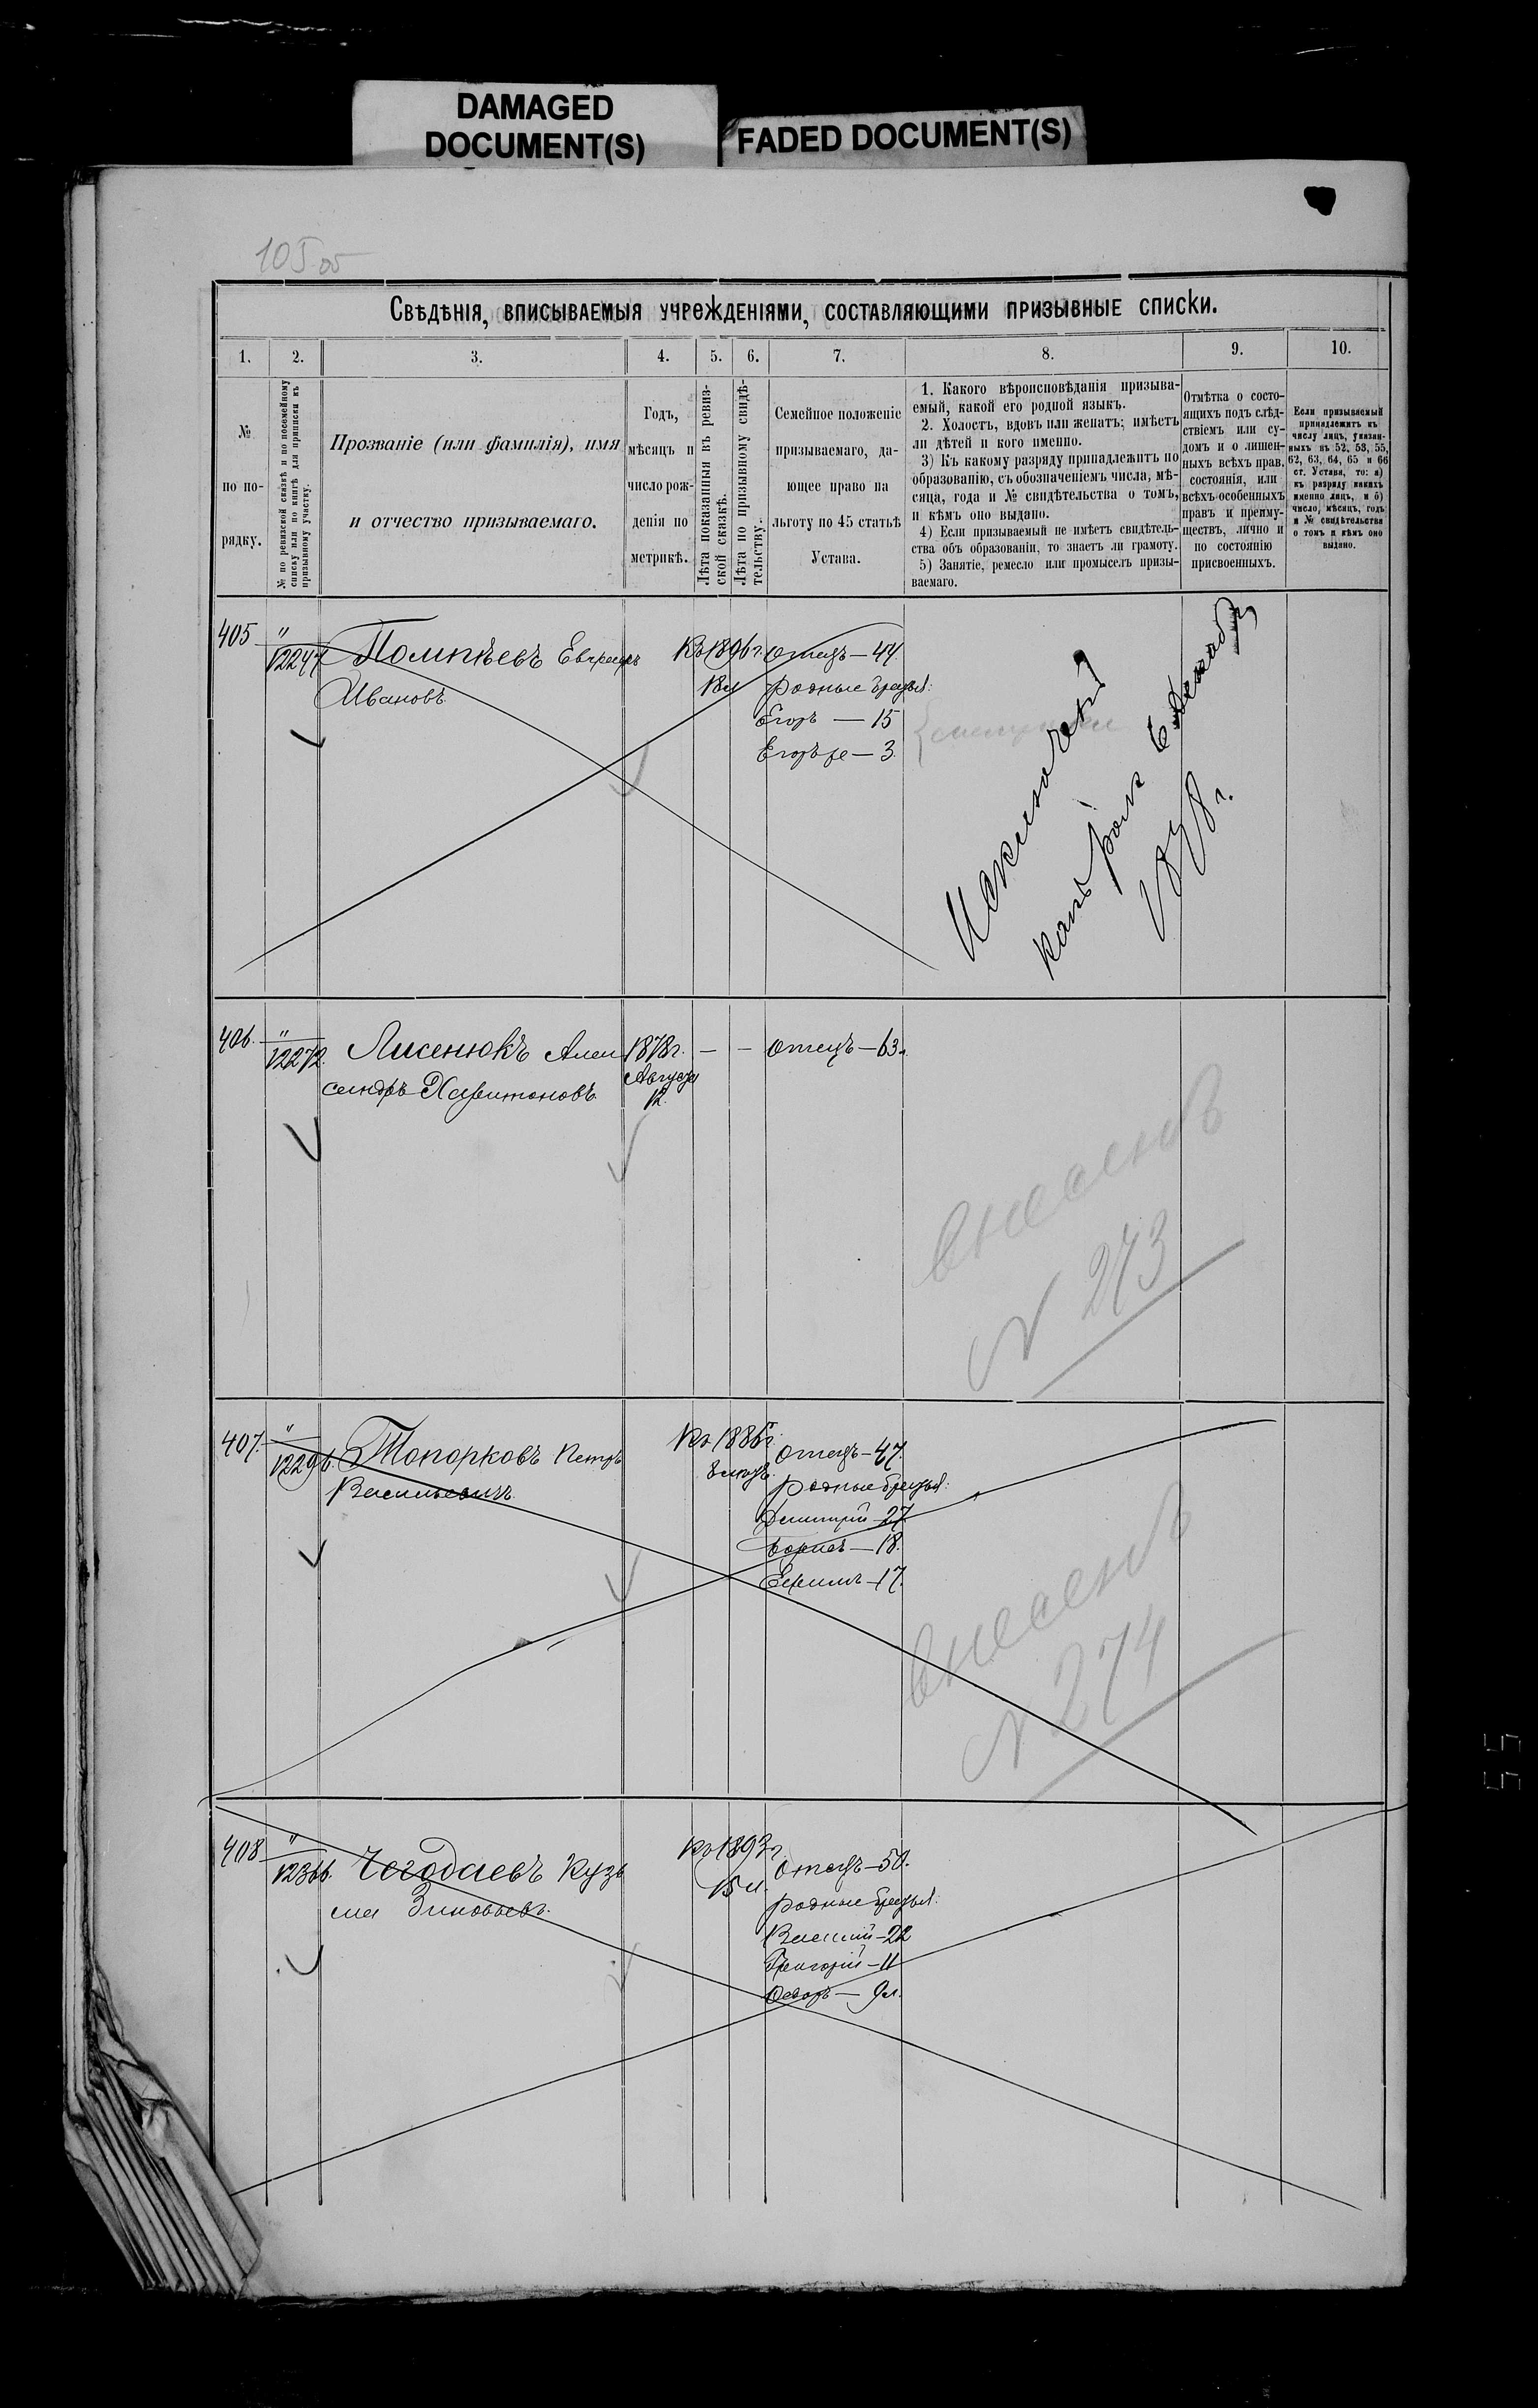 DAMAGED
DOCUMENT(S)
FADED DOCUMENT(S)
105
Свѣдѣнія, вписываемыя учрежденіями, составляющими призывные списки.
1.
2.
3.
4.
5.
6.
7.
8.
9.
10.
№
по по-
рядку.
№ по ревизской сказкѣ и по посемейному
списку или по книгѣ для приписки къ
призывному участку.
Прозваніе (или фамилія), имя
и отчество призываемаго.
Годъ,
мѣсяцъ и
число рож-
денія по
метрикѣ.
Лѣта показанныя въ ревиз-
ской сказкѣ.
Лѣта по призывному свидѣ-
тельству.
Семейное положеніе
призываемаго, да-
ющее право на
льготу по 45 статьѣ
Устава.
1. Какого вѣроисповѣданія призыва-
емый, какой его родной языкъ.
2. Холостъ, вдовъ или женатъ; имѣетъ
ли дѣтей и кого именно.
3) Къ какому разряду принадлежитъ по
образованію, съ обозначеніемъ числа, мѣ-
сяца, года и № свидѣтельства о томъ,
и кѣмъ оно выдано.
4) Если призываемый не имѣетъ свидѣтель-
ства объ образованіи, то знаетъ ли грамоту.
5) Занятіе, ремесло или промыселъ призы-
ваемаго.
Отмѣтка о состо-
ящихъ подъ слѣд-
ствіемъ или су-
домъ и о лишен-
ныхъ всѣхъ прав.
состоянія, или
всѣхъ особенныхъ
правъ и преиму-
ществъ, лично и
по состоянію
присвоенныхъ.
Если призываемый
принадлежитъ къ
числу лицъ, указан-
ныхъ въ 52, 53, 55,
62, 63, 64, 65 и 66
ст. Устава, то: а)
къ разряду какихъ
именно лицъ, и б)
число, мѣсяцъ, годъ
и № свидѣтельства
о томъ и кѣмъ оно
выдано.
405
"
12247
Помпѣевъ
Ивановъ
Къ 1896 г.
18 л
отецъ — 44.
родные братья:
Егоръ — 15
Егоръ же — 3.
какъ
Декабря
1878 г.
406.
"
12272.
Лисенюкъ Алек
сандръ Харитоновъ
1878 г.
Августа
12.
—
—
отецъ — 63 л.
внесенъ
№ 273
407.
"
12296.
Топорковъ Петръ
Васильевичъ
Къ 1886 г.
отецъ — 47.
родные братья:
Димитрій — 27.
Борисъ — 18.
Ефимъ — 17.
внесенъ
№ 274
408
"
12366.
Чегодаевъ Кузь
ма Зиновьевъ.
Къ 1893 г
15 л.
отецъ — 50.
родные братья:
Василій — 22
Григорій — 11
Ѳедоръ — 9 л.
55